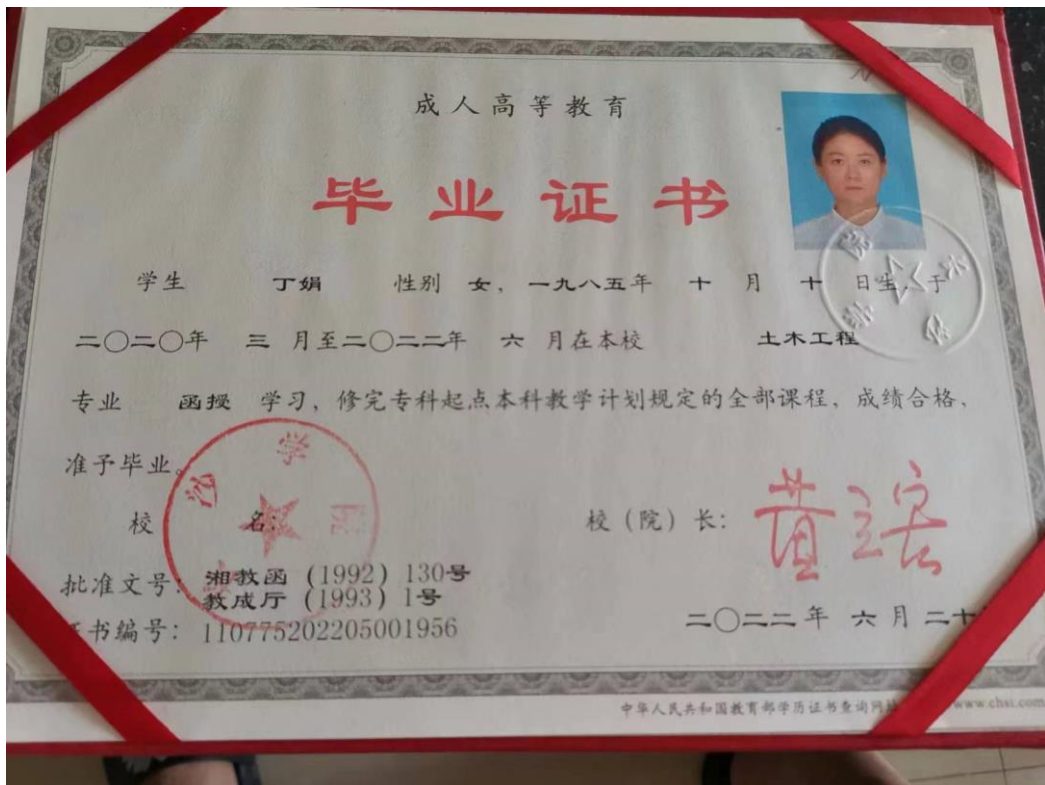 成人高等教育
毕业证书
学生 丁娟 性别 女，一九八五年 十 月 十 日生，于
二〇二〇年 三 月至二〇二二年 六 月在本校 土木工程
专业 函授 学习，修完专科起点本科教学计划规定的全部课程，成绩合格，
准予毕业。
校 名：
校（院）长：
批准文号：湘教函（1992）130号
教成厅（1993）1号
证书编号：110775202205001956
二〇二二年 六 月 二十
中华人民共和国教育部学历证书查询网址 www.chsi.com